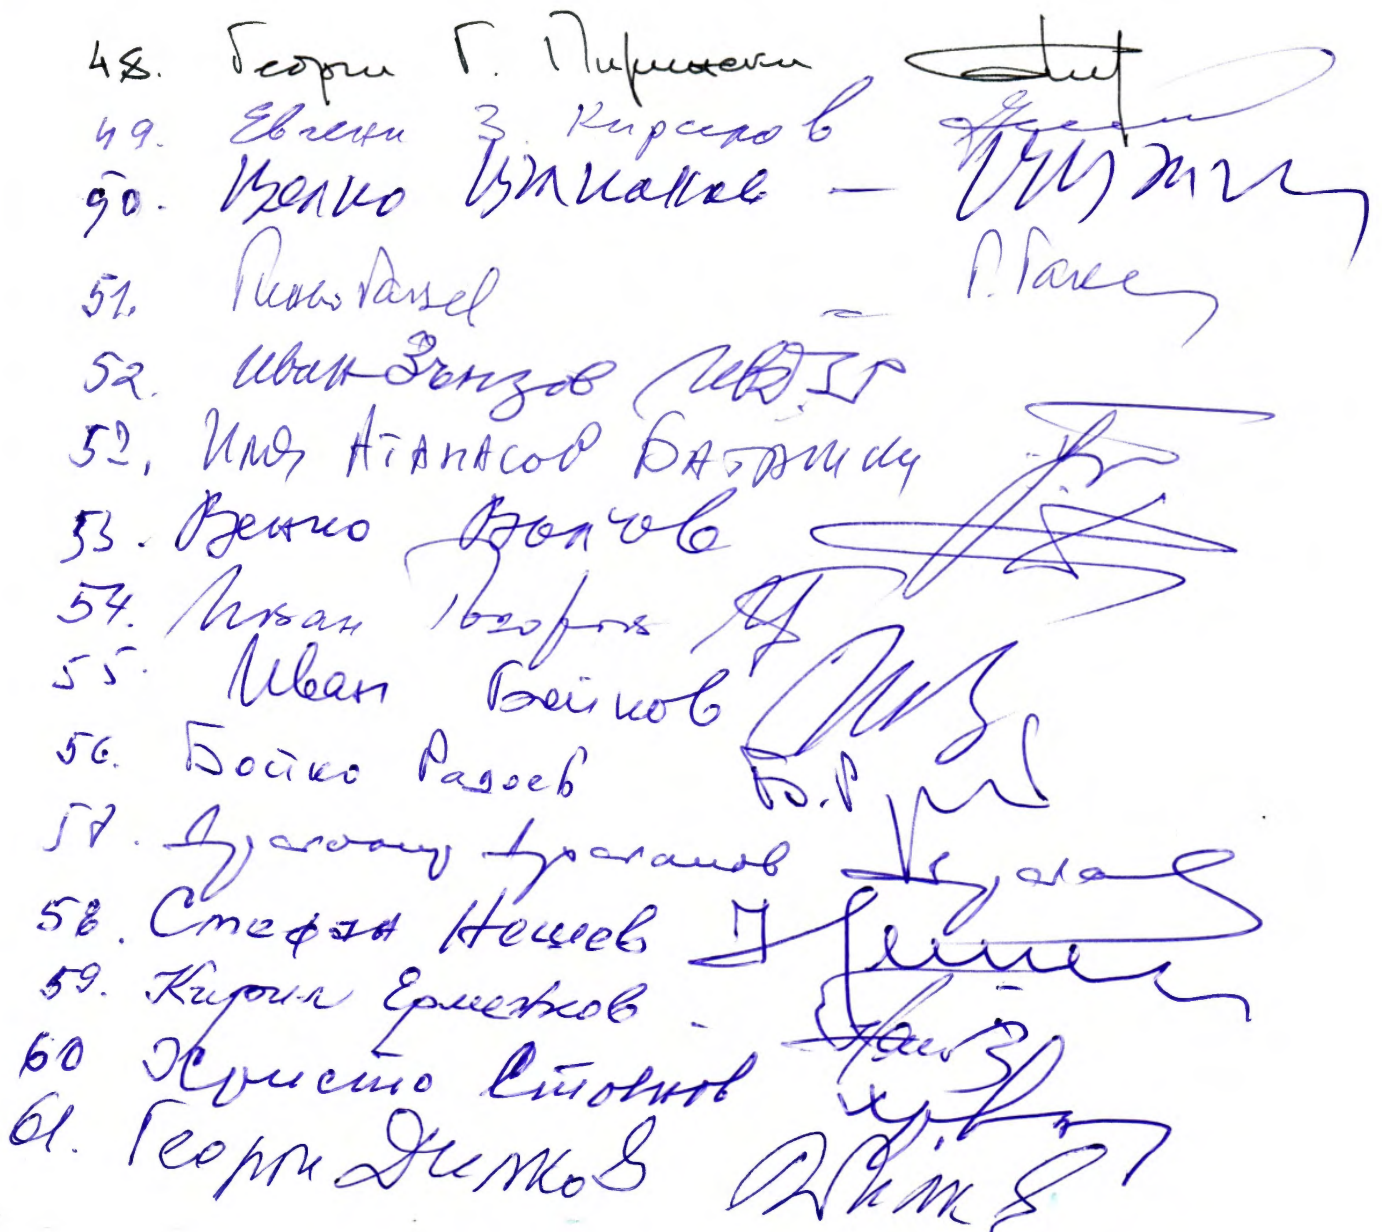 48. Георги Г. Пирински
49. Евгени З. Кирилов
50. Велко Вълканов —
51. Гиньо Ганев Г. Гане
52. Иван Зънзов
52. Илия Атанасов Баташки
53. Венко Вълчев
54. Иван
55. Иван Бейков
56. Бойко Радоев Б.Р
57. Драгомир Драганов
58. Стефан Нешев
59. Кирил Ерменков -
60 Христо Стоянов
61. Георги Дилков